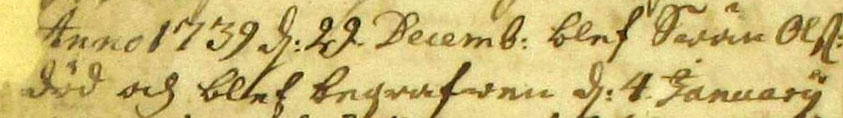 Anno 1739 d: 29 Decemb: blef Swän Olß:
död och blef begrafwen d: 4 January